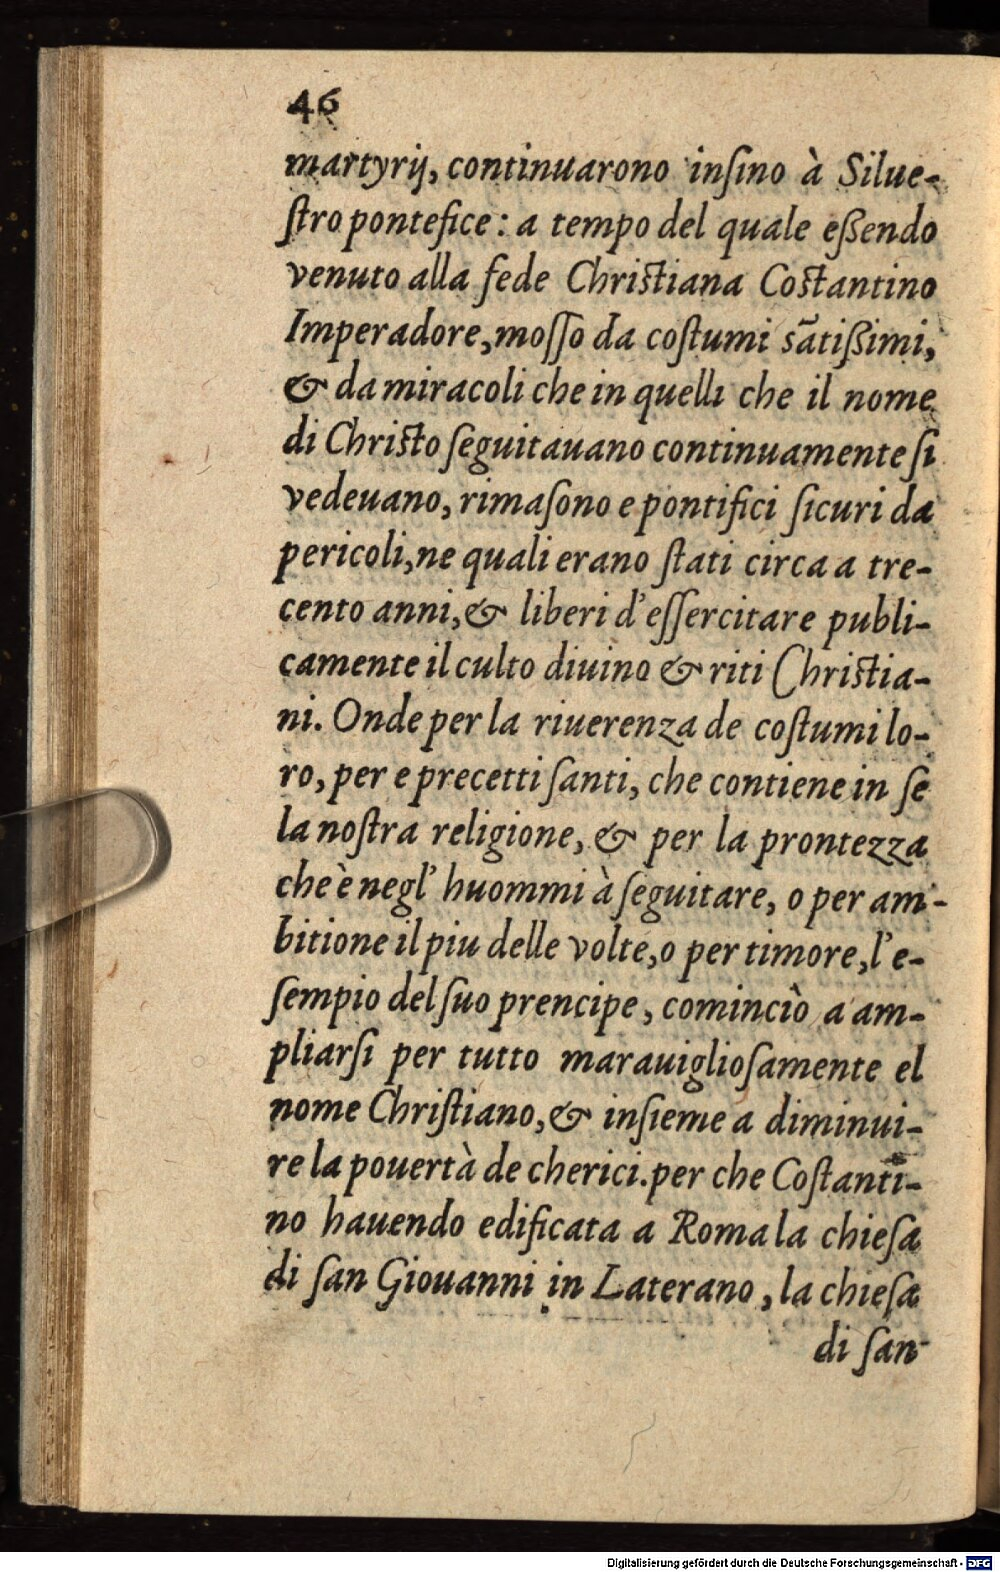 46
martyrij, continuarono inſino à Silue-
ſtro pontefice: a tempo del quale eßendo
venuto alla fede Chriſtiana Coſtantino
Imperadore, moſſo da coſtumi sātißimi,
& da miracoli che in quelli che il nome
di Chriſto ſeguitauano continuamente ſi
vedeuano, rimaſono e pontifici ſicuri da
pericoli, ne quali erano ſtati circa a tre-
cento anni, & liberi d'eſſercitare publi-
camente il culto diuino & riti Chriſtia-
ni. Onde per la riuerenza de coſtumi lo-
ro, per e precetti ſanti, che contiene in ſe
la noſtra religione, & per la prontezza
che è negl' huommi à ſeguitare, o per am-
bitione il piu delle volte, o per timore, l'e-
ſempio del ſuo prencipe, cominciò a am-
pliarſi per tutto marauiglioſamente el
nome Chriſtiano, & inſieme a diminui-
re la pouertà de cherici. per che Coſtanti-
no hauendo edificata a Roma la chieſa
di ſan Giouanni in Laterano, la chieſa
di ſan
Digitalisierung gefördert durch die Deutsche Forschungsgemeinschaft - DFG